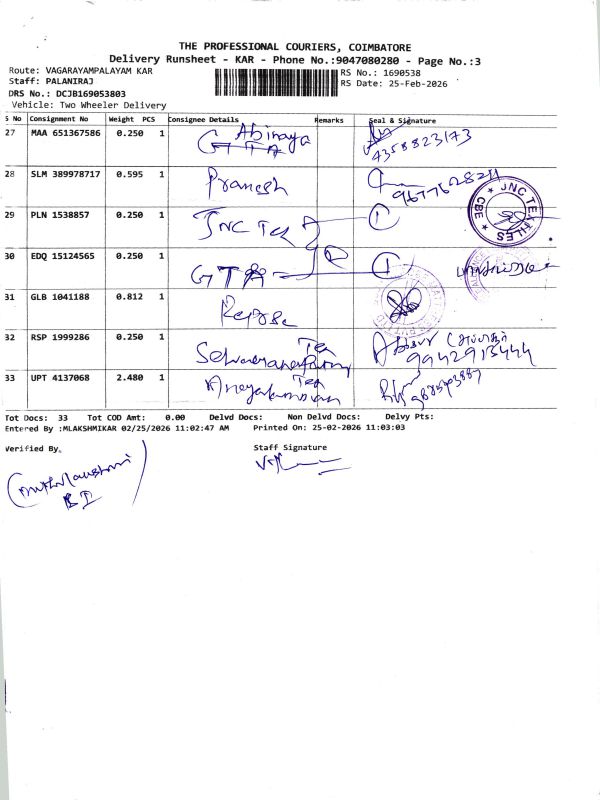 THE PROFESSIONAL COURIERS, COIMBATORE
Delivery Runsheet - KAR - Phone No.:9047080280 - Page No.:3
Route: VAGARAYAMPALAYAM KAR
RS No.: 1690538
Staff: PALANIRAJ
RS Date: 25-Feb-2026
DRS No.: DCJB169053803
Vehicle: Two Wheeler Delivery
S No Consignment No Weight PCS Consignee Details Remarks Seal & Signature
27 MAA 651367586 0.250 1 Abinaya GTA 4358823173
28 SLM 389978717 0.595 1 Pranesh
29 PLN 1538857 0.250 1 JNC Tex
JNC TEXTILES CBE
30 EDQ 15124565 0.250 1 GTA
31 GLB 1041188 0.812 1
32 RSP 1999286 0.250 1 Tex 9942913444
33 UPT 4137068 2.480 1 Tex
Tot Docs: 33 Tot COD Amt: 0.00 Delvd Docs: Non Delvd Docs: Delvy Pts:
Entered By :MLAKSHMIKAR 02/25/2026 11:02:47 AM Printed On: 25-02-2026 11:03:03
Verified By,
Staff Signature